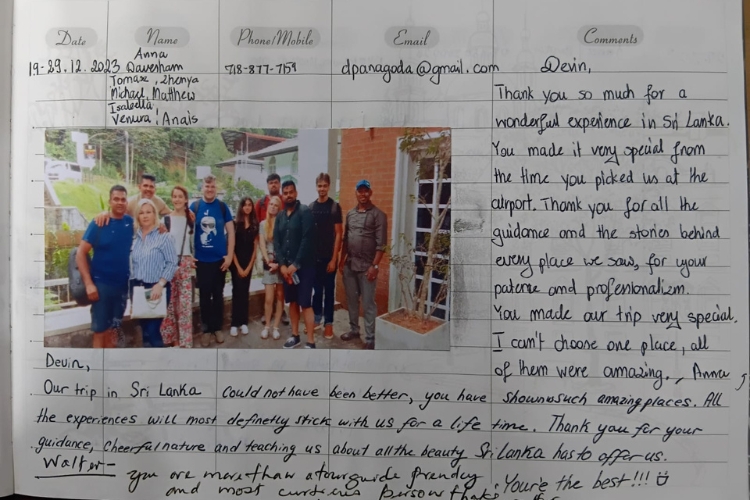 Date Name Phone/Mobile Email Comments
Anna
19-29.12.2023 Davensham 718-877-7159 dpanagoda@gmail.com Devin,
Tomasz, Zhenya
Michael, Matthew
Isabella
Venura! Anais
Thank you so much for a
wonderful experience in Sri Lanka.
You made it very special from
the time you picked us at the
airport. Thank you for all the
guidance and the stories behind
every place we saw, for your
patiense and professionalizm.
You made our trip very special.
I can't choose one place, all
of them were amazing., Anna
Devin,
Our trip in Sri Lanka Could not have been better, you have shown us such amazing places. All
the experiences will most definetly stick with us for a life time. Thank you for your
guidance, cheerful nature and teaching us about all the beauty Sri Lanka has to offer us.
Walter - You're the best!!!
you are more than a tourguide
and most person that's